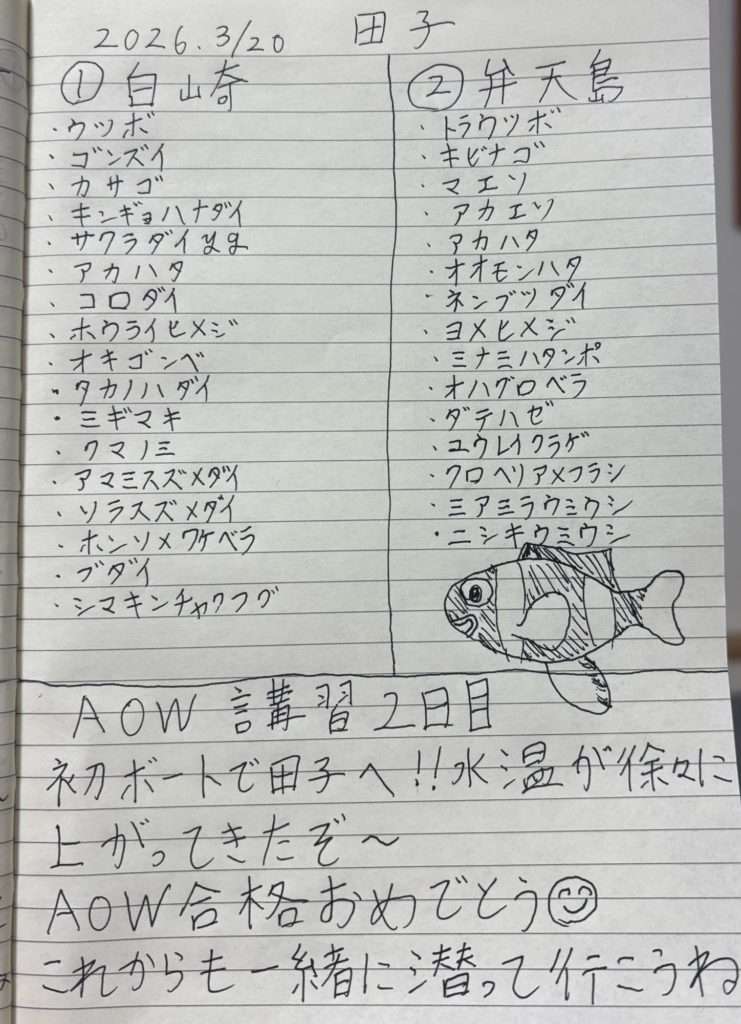 2026.3/20 田子
① 白山崎
・ウツボ
・ゴンズイ
・カサゴ
・キンギョハナダイ
・サクラダイyg
・アカハタ
・コロダイ
・ホウライヒメジ
・オキゴンベ
・タカノハダイ
・ミギマキ
・クマノミ
・アマミスズメダイ
・ソラスズメダイ
・ホンソメワケベラ
・ブダイ
・シマキンチャクフグ
② 弁天島
・トラウツボ
・キビナゴ
・マエソ
・アカエソ
・アカハタ
・オオモンハタ
・ネンブツダイ
・ヨメヒメジ
・ミナミハタンポ
・オハグロベラ
・ダテハゼ
・ユウレイクラゲ
・クロヘリアメフラシ
・ミアミラウミウシ
・ニシキウミウシ
AOW 講習2日目
初ボートで田子へ!!水温が徐々に
上がってきたぞ〜
AOW合格おめでとう
これからも一緒に潜って行こうね